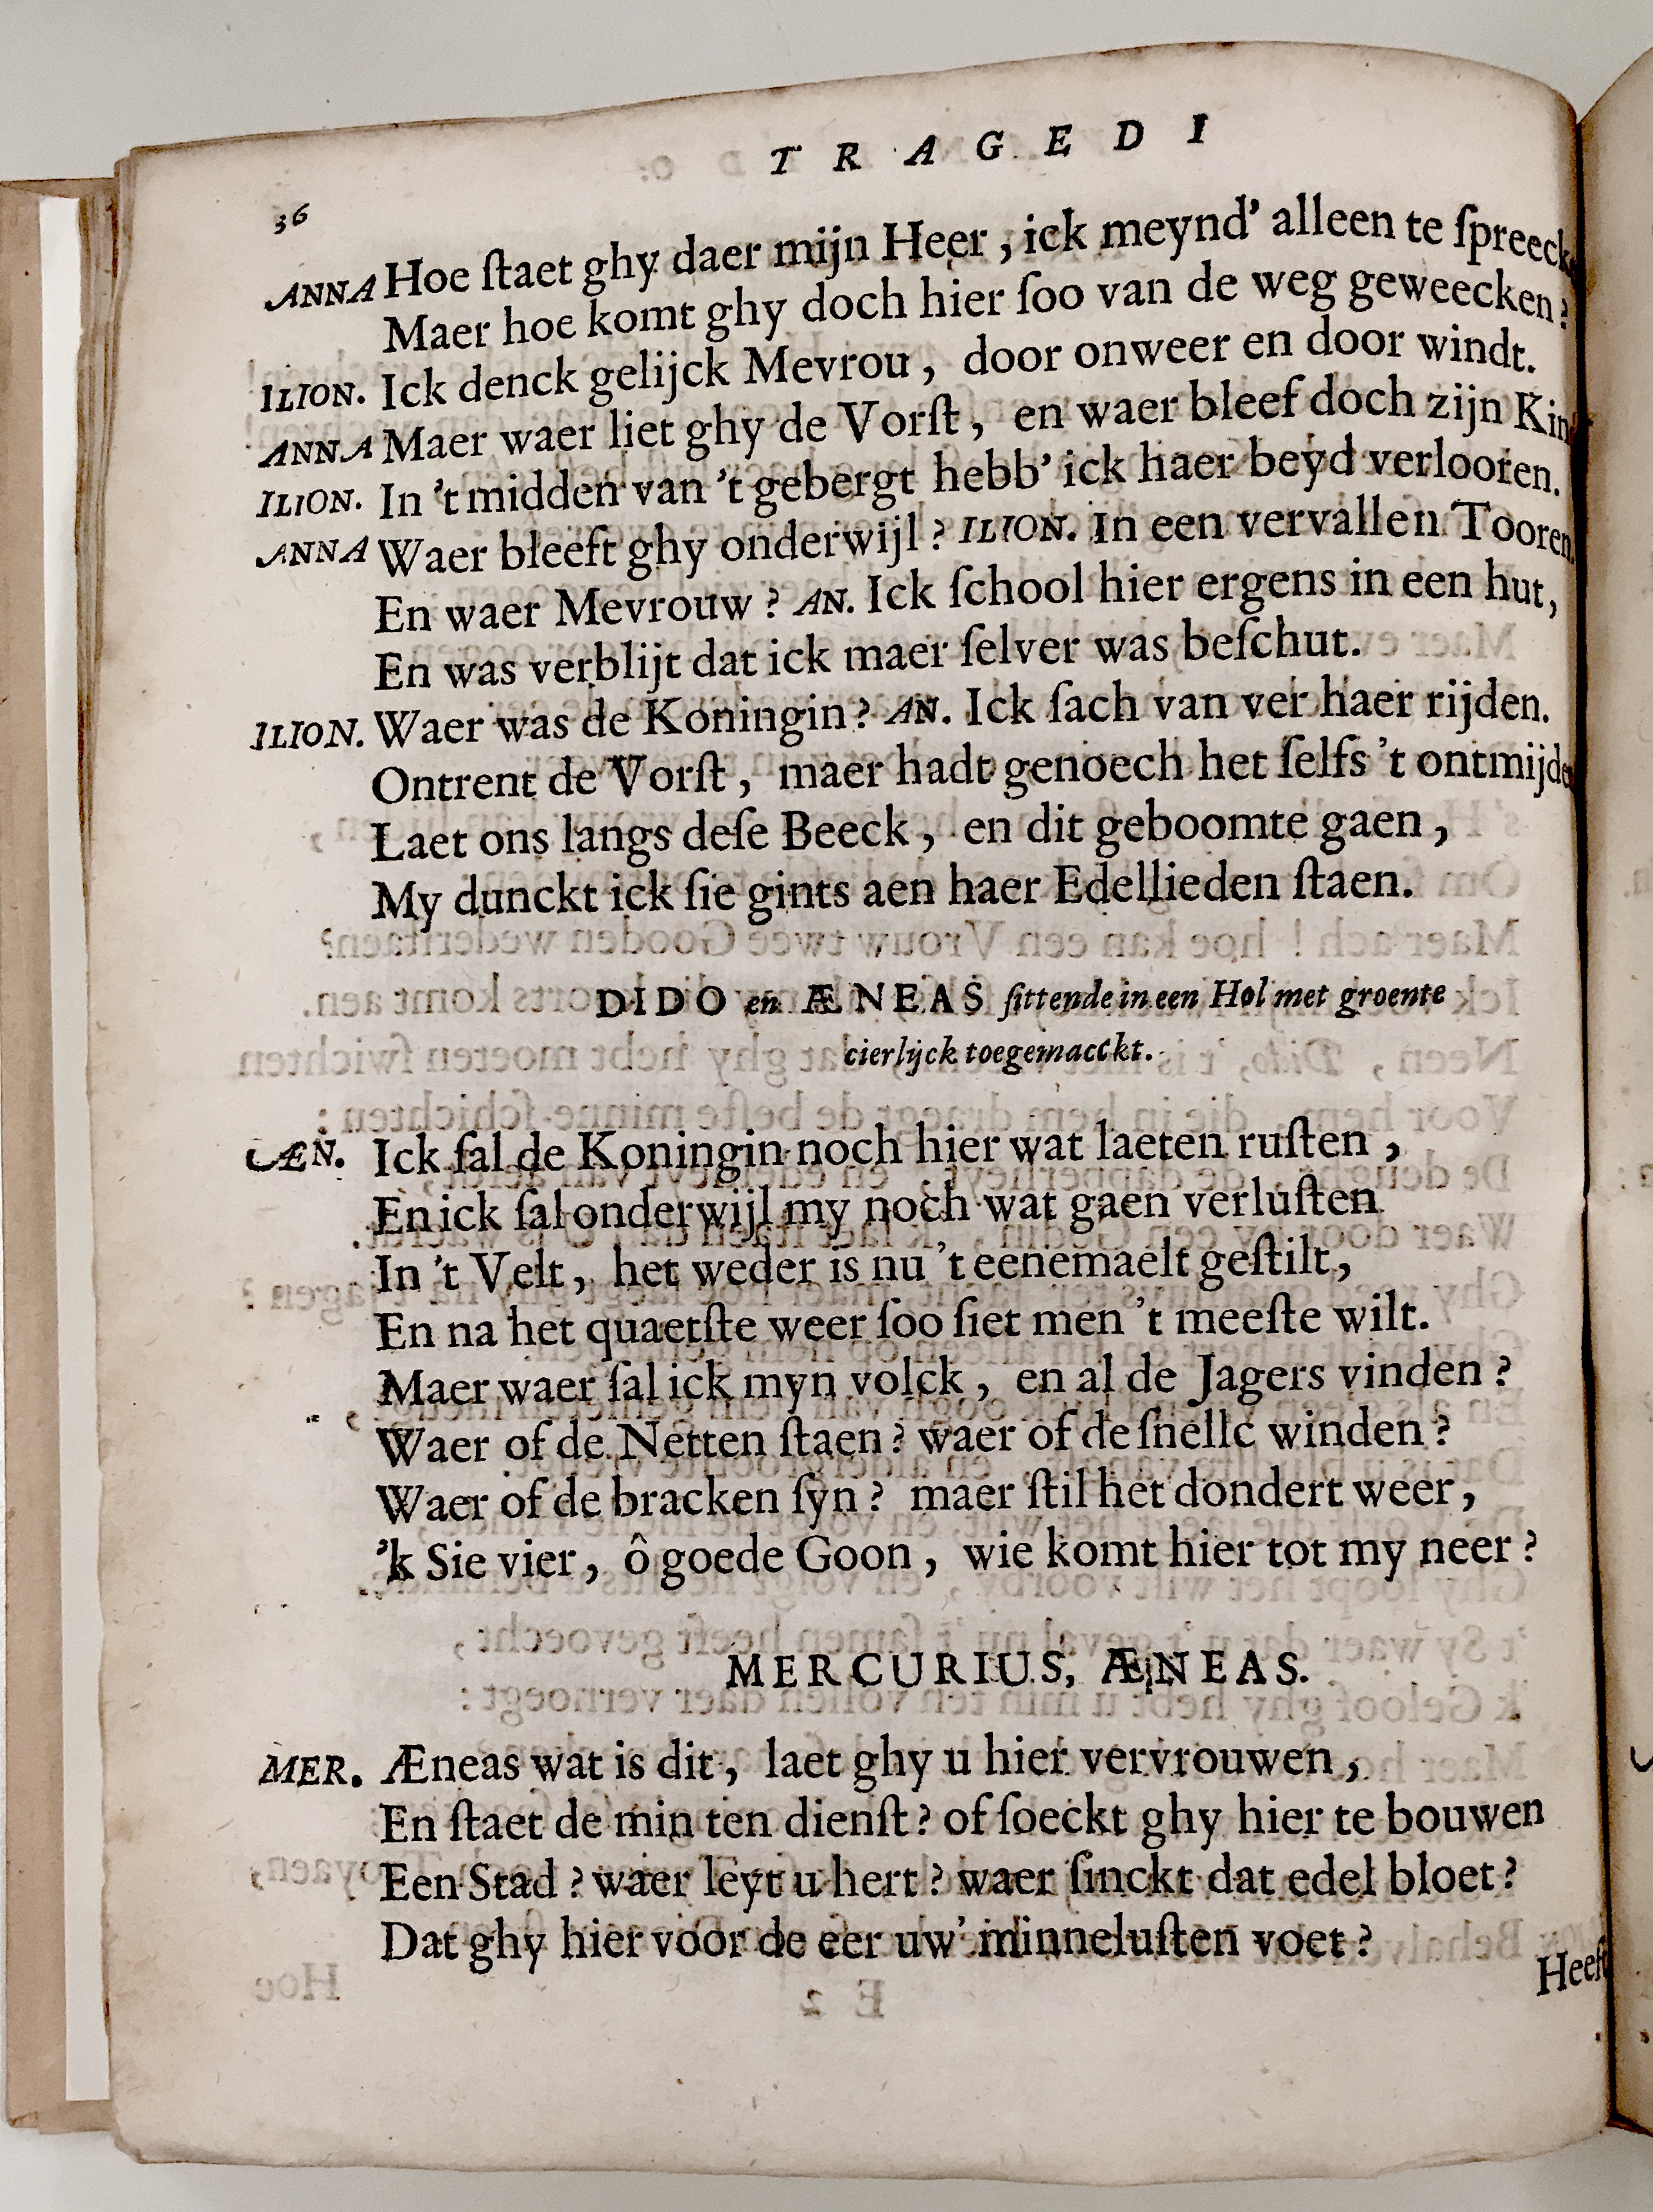 T R A G E D I
36
ANNA Hoe ſtaet ghy daer mijn Heer, ick meynd' alleen te ſpreecke
Maer hoe komt ghy doch hier ſoo van de weg geweecken?
ILION. Ick denck gelijck Mevrou, door onweer en door windt.
ANNA Maer waer liet ghy de Vorſt, en waer bleef doch zijn Kin
ILION. In 't midden van 't gebergt hebb' ick haer beyd verlooren.
ANNA Waer bleeft ghy onderwijl? ILION. In een vervallen Tooren.
En waer Mevrouw? AN. Ick ſchool hier ergens in een hut,
En was verblijt dat ick maer ſelver was beſchut.
ILION. Waer was de Koningin? AN. Ick ſach van ver haer rijden.
Ontrent de Vorſt, maer hadt genoech het ſelfs 't ontmijde
Laet ons langs deſe Beeck, en dit geboomte gaen,
My dunckt ick ſie gints aen haer Edellieden ſtaen.
DIDO en ÆNEAS ſittende in een Hol met groente
cierlijck toegemacckt.
ÆN. Ick ſal de Koningin noch hier wat laeten ruſten,
En ick ſal onderwijl my noch wat gaen verluſten
In 't Velt, het weder is nu 't eenemaelt geſtilt,
En na het quaetſte weer ſoo ſiet men 't meeſte wilt.
Maer waer ſal ick myn volck, en al de Jagers vinden?
Waer of de Netten ſtaen? waer of de ſnellc winden?
Waer of de bracken ſyn? maer ſtil het dondert weer,
'k Sie vier, ô goede Goon, wie komt hier tot my neer?
MERCURIUS, ÆNEAS.
MER. Æneas wat is dit, laet ghy u hier vervrouwen,
En ſtaet de min ten dienſt? of ſoeckt ghy hier te bouwen
Een Stad? waer leyt u hert? waer ſinckt dat edel bloet?
Dat ghy hier voor de eer uw' minneluſten voet?
Heeft